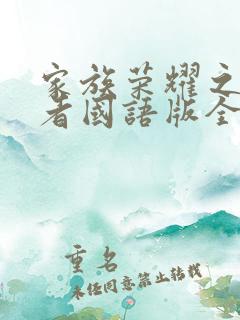 家族荣耀之
者國語版全
重名
未经同意禁止转载